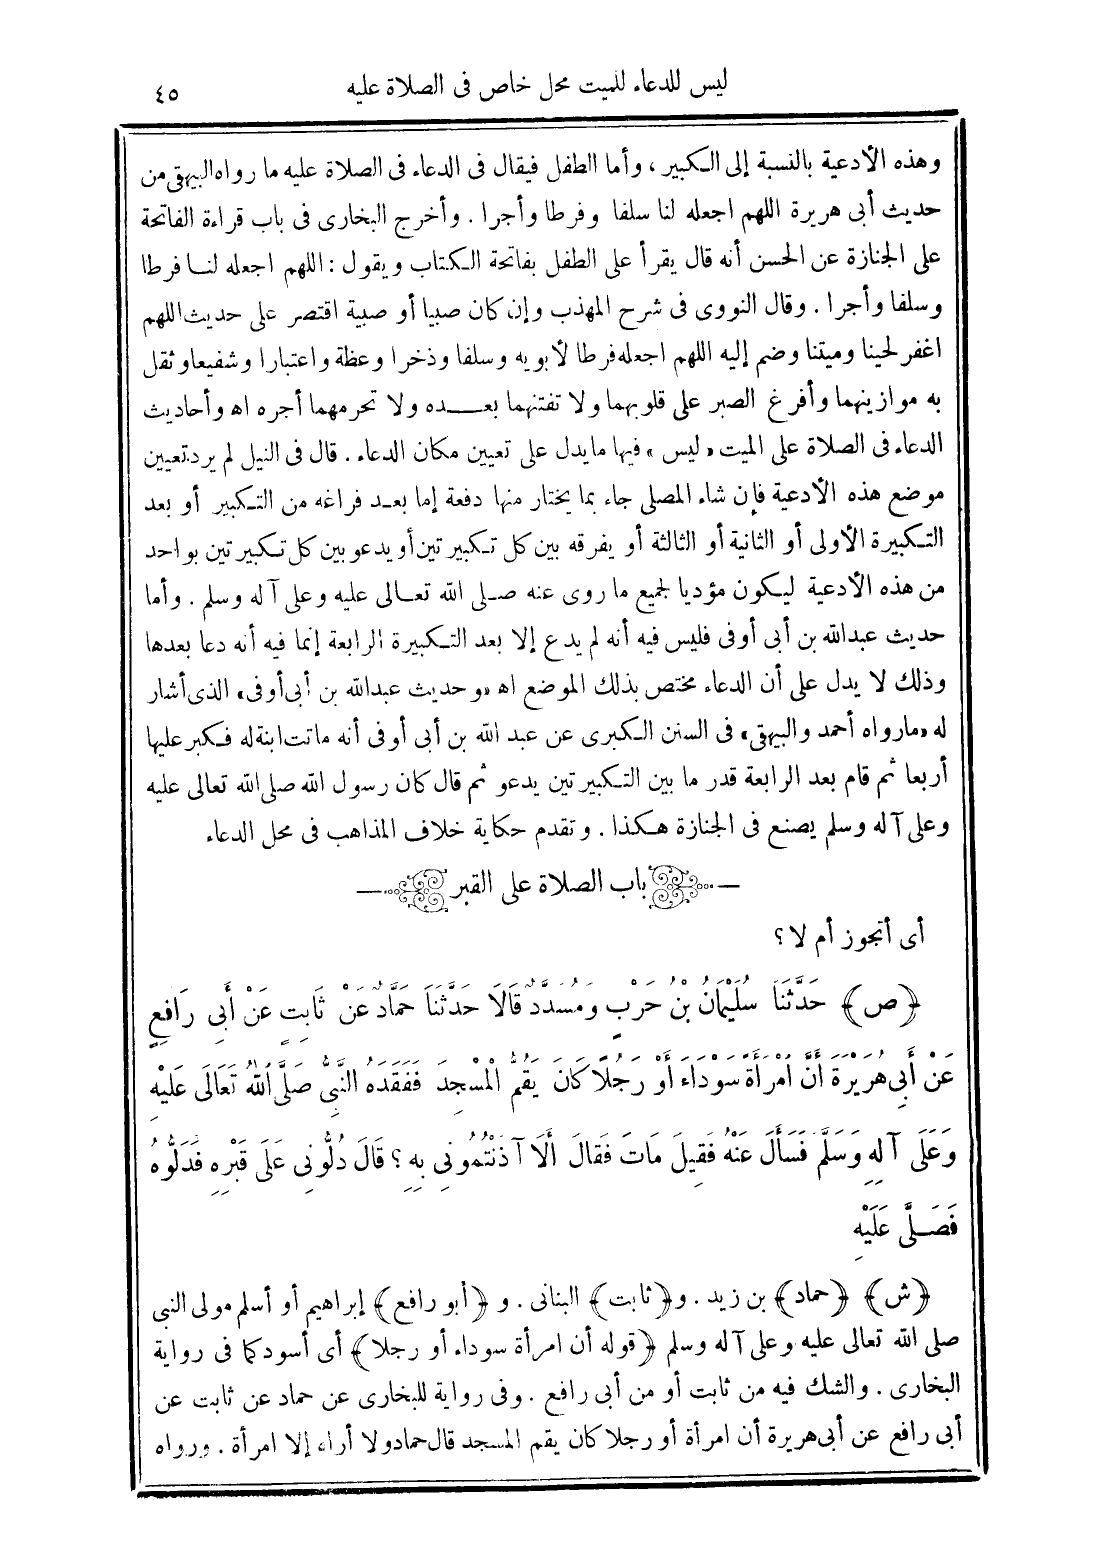 ليس للدعاء للميت محل خاص فى الصلاة عليه ٤٥
وهذه الأدعية بالنسبة إلى الكبير ، وأما الطفل فيقال فى الدعاء فى الصلاة عليه ما رواه البيهقى من
حديث أبى هريرة اللهم اجعله لنا سلفا وفرطا وأجرا . وأخرج البخارى فى باب قراءة الفاتحة
على الجنازة عن الحسن أنه قال يقرأ على الطفل بفاتحة الكتاب ويقول : اللهم اجعله لنا فرطا
وسلفا وأجرا . وقال النووى فى شرح المهذب وإن كان صبيا أو صبية اقتصر على حديث اللهم
اغفر لحينا وميتنا وضم إليه اللهم اجعله فرطا لأبويه وسلفا وذخرا وعظة واعتبارا وشفيعا وثقل
به موازينهما وأفرغ الصبر على قلوبهما ولا تفتنهما بعده ولا تحرمهما أجره اه وأحاديث
الدعاء فى الصلاة على الميت «ليس» فيها ما يدل على تعيين مكان الدعاء . قال فى النيل لم يرد تعيين
موضع هذه الأدعية فإن شاء المصلى جاء بما يختار منها دفعة إما بعد فراغه من التكبير أو بعد
التكبيرة الأولى أو الثانية أو الثالثة أو يفرقه بين كل تكبيرتين أو يدعو بين كل تكبيرتين بواحد
من هذه الأدعية ليكون مؤديا لجميع ما روى عنه صلى الله تعالى عليه وعلى آله وسلم . وأما
حديث عبدالله بن أبى أوفى فليس فيه أنه لم يدع إلا بعد التكبيرة الرابعة إنما فيه أنه دعا بعدها
وذلك لا يدل على أن الدعاء مختص بذلك الموضع اه «وحديث عبدالله بن أبى أوفى» الذى أشار
له «ما رواه أحمد والبيهقى» فى السنن الكبرى عن عبد الله بن أبى أوفى أنه ماتت ابنة له فكبر عليها
أربعا ثم قام بعد الرابعة قدر ما بين التكبيرتين يدعو ثم قال كان رسول الله صلى الله تعالى عليه
وعلى آله وسلم يصنع فى الجنازة هكذا . وتقدم حكاية خلاف المذاهب فى محل الدعاء
باب الصلاة على القبر
أى أتجوز أم لا؟
﴿ص﴾ حَدَّثَنَا سُلَيْمَانُ بْنُ حَرْبٍ وَمُسَدَّدٌ قَالَا حَدَّثَنَا حَمَّادٌ عَنْ ثَابِتٍ عَنْ أَبِى رَافِعٍ
عَنْ أَبِى هُرَيْرَةَ أَنَّ امْرَأَةً سَوْدَاءَ أَوْ رَجُلًا كَانَ يَقُمُّ الْمَسْجِدَ فَفَقَدَهُ النَّبِىُّ صَلَّى اللهُ تَعَالَى عَلَيْهِ
وَعَلَى آلِهِ وَسَلَّمَ فَسَأَلَ عَنْهُ فَقِيلَ مَاتَ فَقَالَ أَلَا آذَنْتُمُونِى بِهِ ؟ قَالَ دُلُّونِى عَلَى قَبْرِهِ فَدَلُّوهُ
فَصَلَّى عَلَيْهِ
﴿ش﴾ ﴿حماد﴾ بن زيد . و﴿ثابت﴾ البنانى . و ﴿أبو رافع﴾ إبراهيم أو أسلم مولى النبى
صلى الله تعالى عليه وعلى آله وسلم ﴿قوله أن امرأة سوداء أو رجلا﴾ أى أسود كما فى رواية
البخارى . والشك فيه من ثابت أو من أبى رافع . وفى رواية للبخارى عن حماد عن ثابت عن
أبى رافع عن أبى هريرة أن امرأة أو رجلا كان يقم المسجد قال حماد ولا أراء إلا امرأة . ورواه